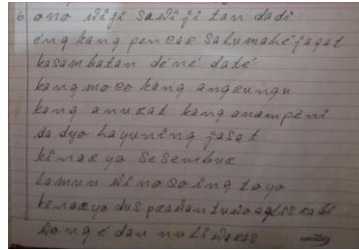 6. ono wiji sawiji tan dadi
éng kang pencar salumahé jagat
kasambatan déné daté
kang moco kang angrungu
kang anurat kang anampéni
dadyo hayuning jagat
kinaryo sesembur
lamun winoco ing toyo
kinaryo dus prabantuwo aglis kabi
wong édan nuli waras